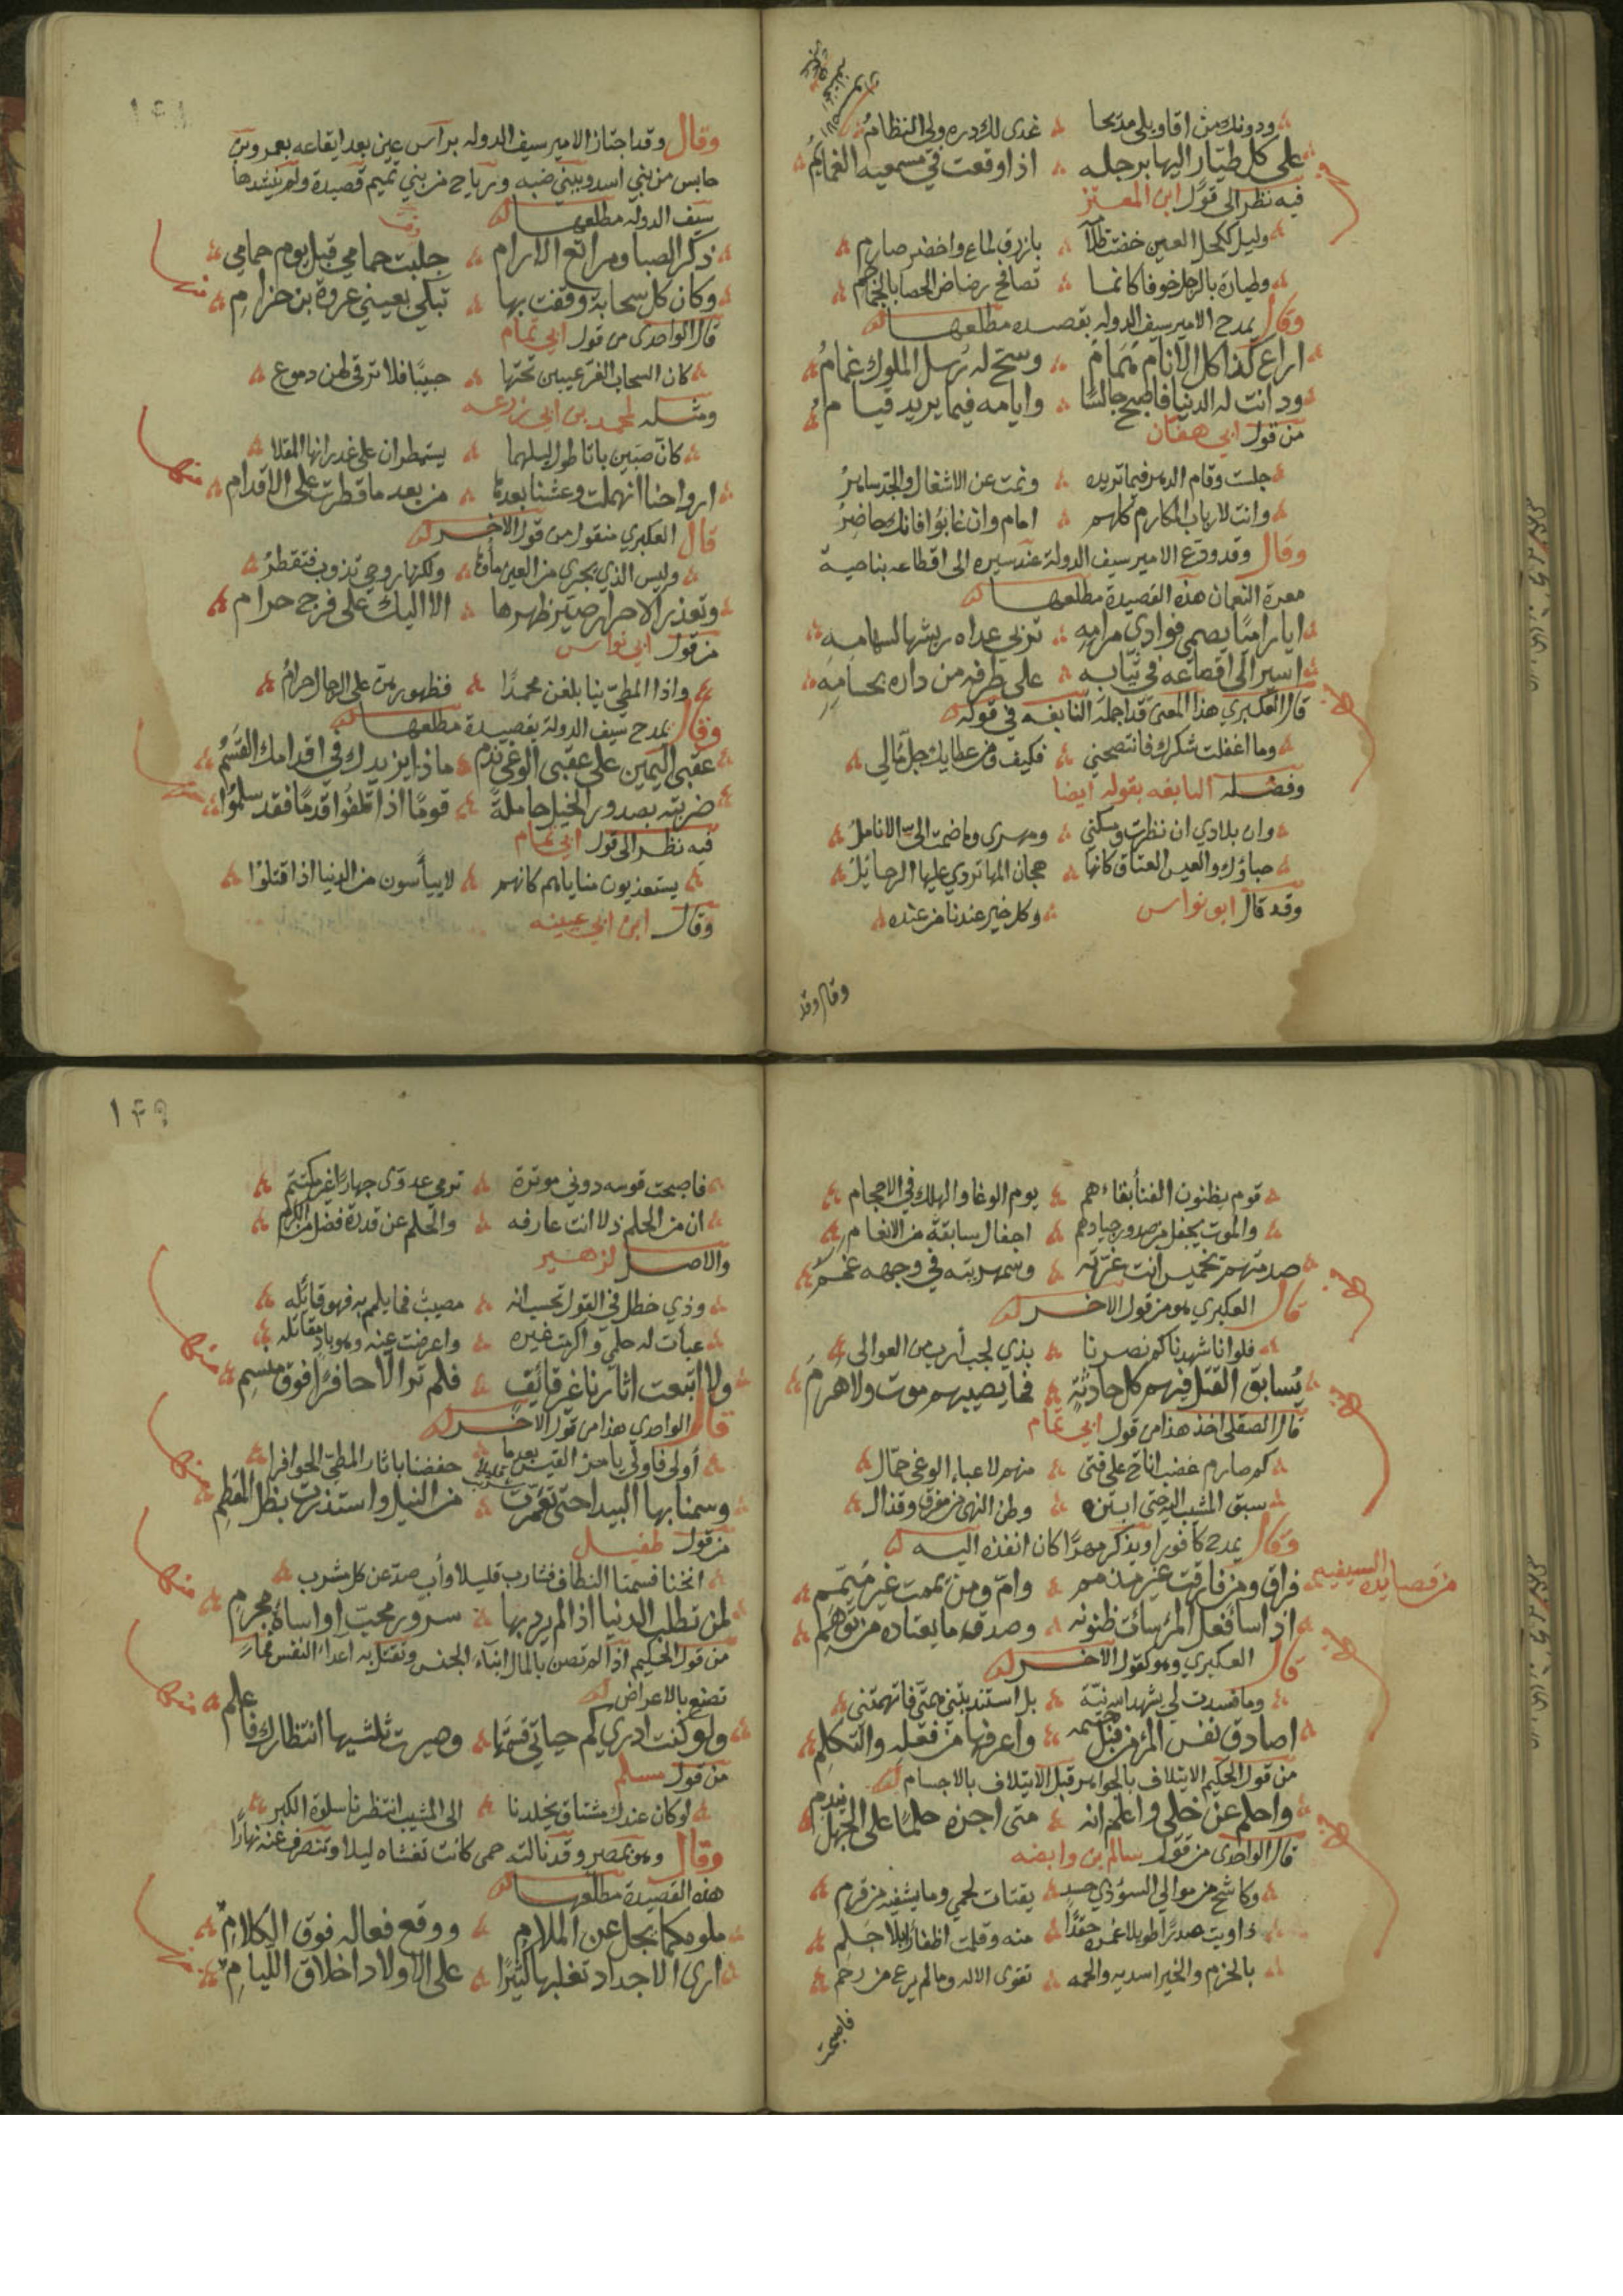 ودونك من اقاويلي مديحا ۞ غدى لك دره ولي النظام
على كل طيار اليها برجله ۞ اذا وقعت في مسمعيه الغماغم
فيه نظر الى قول ابن المعتز
وليل ككحل العين خضت ظلامه ۞ بازرق لماع واخضر صارم
وطيارة بالرجل خوفا كانما ۞ تصافح رضاض الحصا بالجماجم
وقال يمدح الامير سيف الدوله بقصيده مطلعها
اراع كذا كل الانام همام ۞ وسح له رسل الملوك غمام
ودانت له الدنيا فاصبح جالسا ۞ وايامه فيما يريد قيام
من قول ابي هفان
جلست وقام الدهر فيما تريده ۞ ونمت عن الاشغال والجد ساهر
وانت لارباب المكارم كلهم ۞ امام وان غابوا فانك حاضر
وقال وقد وقع الامير سيف الدولة عند سيره الى اقطاعه بناحية
معرة النعمان هذه القصيدة مطلعها
ايا راميا يصمي فوادي مرامه ۞ تربي عداه ريشها لسهامه
اسير الى اقطاعه في ثيابه ۞ على طرفه من داره بحسامه
قال العكبري هذا المعنى قد اجمله النابغه في قوله
وما اغفلت شكرك فانتصحني ۞ فكيف ومن عطايك جل مالي
وفصله النابغه بقوله ايضا
وان بلادي ان نظرت ومسكني ۞ ومهرى وما ضمت الي الانامل
حباؤك والعيس العتاق كانها ۞ هجان المها تردي عليها الرحائل
وقد قال ابو نواس ۞ وكل خير عندنا من عنده
وقال وقد
وقال وقد اجتاز الامير سيف الدوله براس عين بعد ايقاعه بعمرو بن
حابس من بني اسد وببني ضبه ورياح من بني تميم قصيدة ولم ينشدها
سيف الدوله مطلعها
ذكر الصبا ومراتع الارام ۞ جلبت حمامي قبل يوم حمامي
وكان كل سحابة وقفت بها ۞ تبكي بعيني عروة بن حزام
قال الواحدى من قول ابي تمام
كان السحاب الغر غيبن تحتها ۞ حبيبا فلا ترقى لهن دموع
ومثله لمحمد بن ابي زرعه
كان صبين باتا طول ليلهما ۞ يستمطران على غدرانها المقلا
ارواحنا انهملت وعشنا بعدها ۞ من بعد ما قطرت على الاقدام
قال العكبري منقول من قول الاخر
وليس الذي يجرى من العين ماؤها ۞ ولكنها روحي تذوب فتقطر
وتعذر الاحرار صير ظهرها ۞ الا اليك على فرج حرام
من قول ابي نواس
واذا المطي بنا بلغن محمدا ۞ فظهورهن على الرحال حرام
وقال يمدح سيف الدولة بقصيدة مطلعها
عقبى اليمين على عقبى الوغى ندم ۞ ماذا يزيدك في اقدامك القسم
ضربته بصدور الخيل حاملة ۞ قوما اذا تلفوا قدما فقد سلموا
فيه نظر الى قول ابي تمام
يستعذبون مناياهم كانهم ۞ لا ييأسون من الدنيا اذا قتلوا
وقال ابن ابي عيينه
قوم يظنون الفنا بقاءهم ۞ يوم الوغا والهلك في الاحجام
والموت يجفل من صدور جيادهم ۞ اجفال سابقة من الانعام
صدمتهم بخميس انت غرته ۞ وسمهريته في وجهه غمم
قال العكبري هو من قول الاخر
فلو انا شهدناكم نصرنا ۞ بذي لجب أزب من العوالى
يسابق القتل فيهم كل حادثة ۞ فما يصيبهم موت ولا هرم
قال الصقلى اخذ هذا من قول ابي تمام
كم صارم غضب اناخ على فتى ۞ منهم لاعباء الوغى حمال
سبق المشيب اليه حتى ابتزه ۞ وطن النهى من مفرق وقذال
وقال يمدح كافورا ويذكر مهرا كان انفذه اليه
من قصايده السيفيه
فراق ومن فارقت غير مذمم ۞ وام ومن يممت غير ميمم
اذا سأ فعل المرء سأت ظنونه ۞ وصدق ما يعتاده من توهم
قال العكبري وهو كقول الاخر
وما فسدت لي يشهد الله نية ۞ بل استندبتني متى فاتهمتني
اصادق نفس المرء من قبل جسمه ۞ واعرفها من فعله والتكلم
من قول الحكيم الايتلاف بالجواهر قبل الايتلاف بالاجسام
واحلم عن خلي واعلم انه ۞ متى اجزه حلما على الجهل يندم
قال الواحدى من قول سالم بن وابصه
وكاشح من موالي السوء ذي حسد ۞ يقتات لحمي وما يشفيه من قرم
داويت صدرا طويلا غمره حقدا ۞ منه وقلمت اظفارا بلا جلم
بالحزم والخير اسديه والحمه ۞ تقوى الاله وما لم يرع من رحم
فاصبحت
١٤٩
فاصبحت قوسه دوني موترة ۞ ترمي عدوى جهارا غير مكتتم
ان من الحلم ذلا انت عارفه ۞ والحلم عن قدرة فضل من الكرم
والاصل لزهير
وذي خطل في القول تحسب انه ۞ مصيب فما يلمم به فهو قائله
عبات له حلمي واكرمت غيره ۞ واعرضت عنه وهو باد مقاتله
ولا اتبعت اثارنا غير قائف ۞ فلم تر الا حافرا فوق منسم
قال الواحدي هذا من قول الاخر
أولى فاولى يا مرء القيس بعدما ۞ خصفنا باثار المطي الحوافرا
وسمنا بها البيدا حتى تغمرت ۞ من النيل واستذرت بظل المقطم
من قول طفيل
انخنا فسمنا النطاف فشارب قليلا وأب صد عن كل مشرب
لمن تطلب الدنيا اذا لم يرد بها ۞ سرور محب او اساة مجرم
من قول الحكيم اذا لم تصن بالمال ابناء الجنس وتقتل به اعداء النفس فما
تصنع بالاعراض
ولو كنت ادري كم حياتي قسمتها ۞ وصيرت ثلثيها انتظارك فاعلم
من قول مسلم
لو كان عندك مشتاق يخلدنا ۞ الى المشيب انتظرنا سلوة الكبر
وقال وهو بمصر وقد نالته حمى كانت تغشاه ليلا وتنصرف عنه نهارا
هذه القصيدة مطلعها
ملومكما يجل عن الملام ۞ ووقع فعاله فوق الكلام
ارى الاجداد تغلبها كثيرا ۞ على الاولاد اخلاق الليام